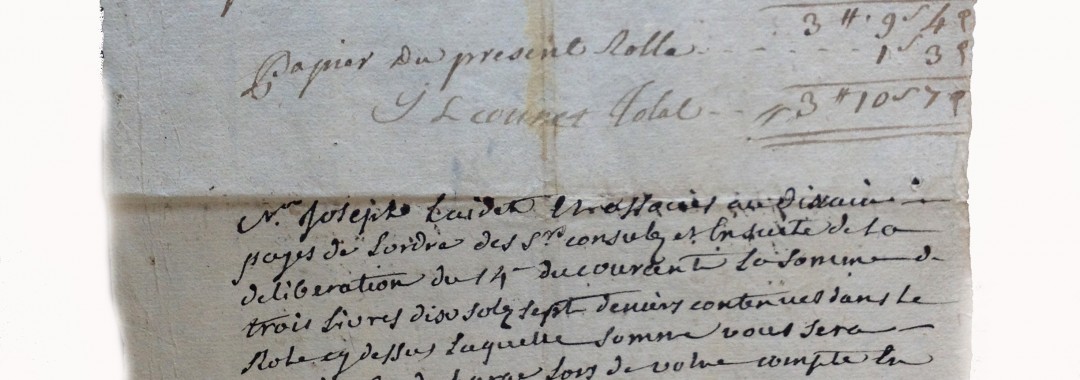 3 ₶ 9 s 4 d
Papier du present Rolle - - - 1 s 3 d
total - - 3 ₶ 10 s 7 d
Mr. Joseph
payes de Lordre des Srs consulz et Ensuite de La
deliberation du 14e du courant La somme de
trois Livres dix solz sept deniers contenues dans Le
Role cy dessus Laquelle somme vous sera
lors de votre compte En